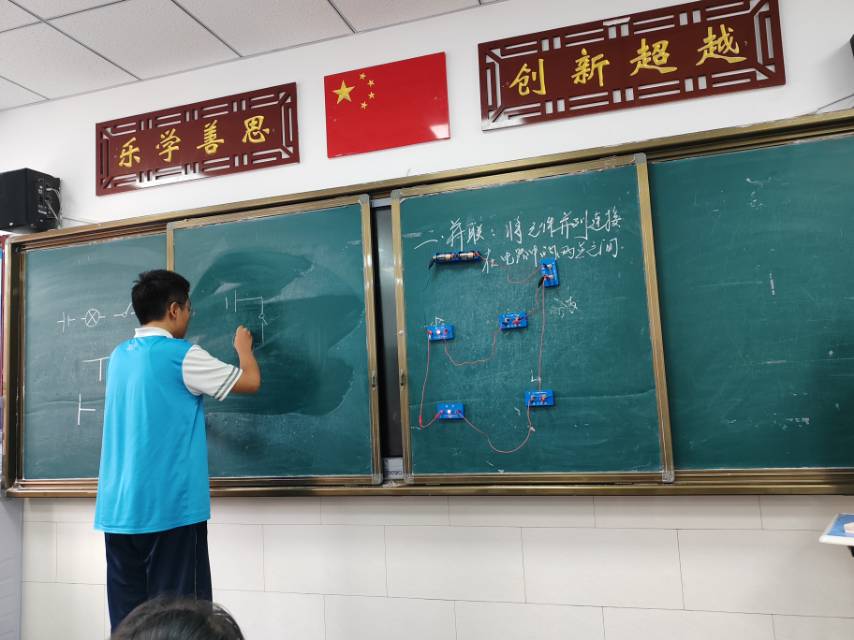 乐学善思
创新超越
二.并联：将元件并列连接
在电路中的两点之间.